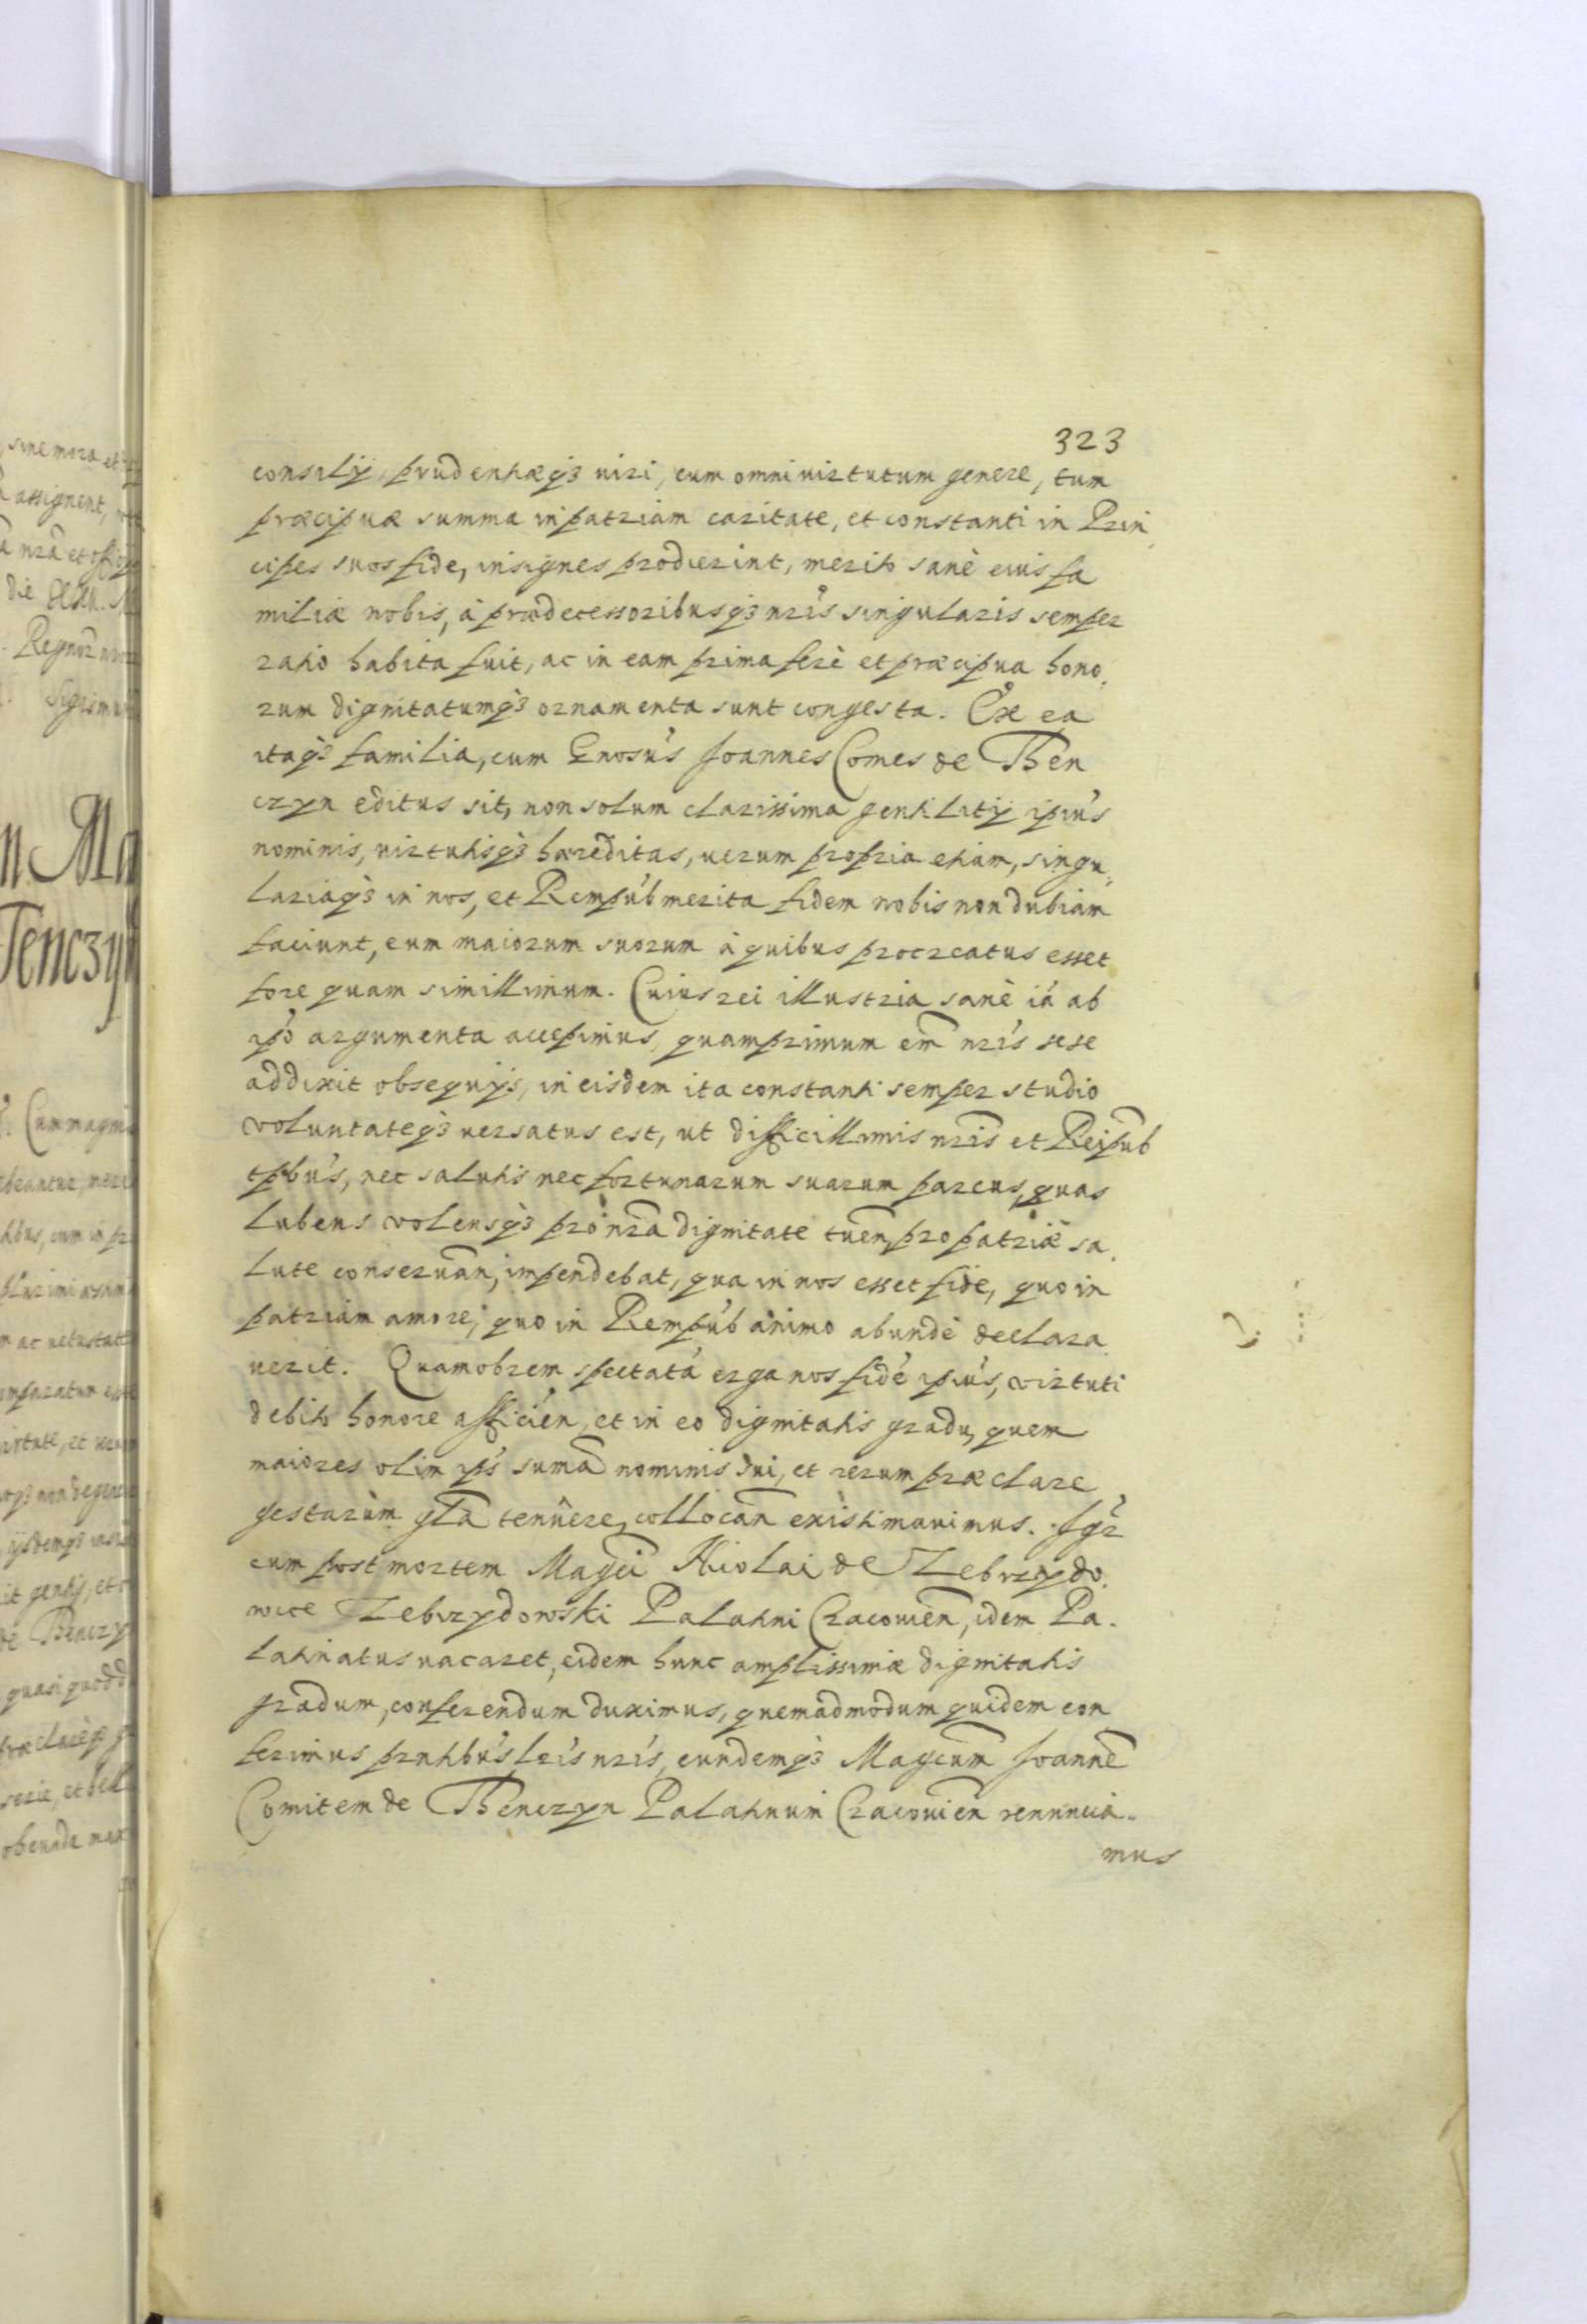 323
consilij, prudentiæq3 uiri, cum omni uirtutum genere, tum
præcipuæ summa in patriam caritate, et constanti in Prin
cipes suos fide, insignes prodierint, merito sanè eius fa
miliæ nobis, à prædecessoribusq3 nrĩs singularis semper
ratio habita fuit, ac in eam prima ferè et præcipua hono,
rum dignitatumq3 ornamenta sunt congesta. Ex ea
itaq3 familia, cum Gnosus Joannes Comes de Then
czyn editus sit, non solum clarissima gentilitij ipius
nominis, uirtutisq3 hæreditas, uerum propria etiam, singu,
lariaq3 in nos, et Rempub merita fidem nobis non dubiam
faciunt, eum maiorum suorum à quibus procreatus esset
fore quam simillimum. Cuius rei illustria sanè iã ab
ipõ argumenta accepimus, quamprimum em̃ nrĩs sese
addixit obsequijs, in eisdem ita constanti semper studio
voluntateq3 uersatus est, ut difficillimis nrĩs et Reipub
tpbus, nec salutis nec fortunarum suarum parcus, quas
lubens volensq3 pro nrã dignitate tuen̄, pro patriæ sa,
lute conseruan̄, impendebat, qua in nos esset fide, quo in
patriam amore, quo in Rempub animo abundè declara
uerit. Quamobrem spectatã erga nos fidẽ ipius, virtuti
debito honore afficien̄, et in eo dignitatis gradu, quem
maiores olim ip̃s sum̃a nominis sui, et rerum præclare
gestarum glã tenuere, collocan̄ existimauimus. Igr̃
cum post mortem Magci Nicolai de Zebrzydo,
wice Zebrzydowski Palatini Cracouien̄, idem Pa.
latinatus uacaret, eidem hunc amplissimæ dignitatis
gradum, conferendum duximus, quemadmodum quidem con
ferimus prntibus lrĩs nrĩs, eundemq3 Magcum Joannẽ
Comitem de Thenczyn Palatinum Cracouien̄ renuncia..
mus